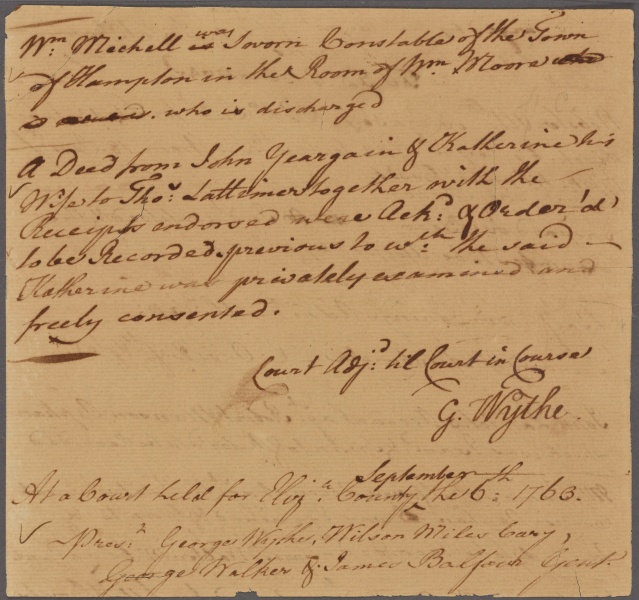 Wm. Michell was Sworn Constable of the Town
of Hampton in the Room of Wm. Moore who
who is discharged
A Deed from John Yeargain & Katherine his
Wife to Thos. Lattimer together with the
Receipts endorsed were Ackd. & Order'd
to be Recorded previous to wch. the said
Katherine was privately examined and
freely consented.
Court Adjd. til Court in Course
G. Wythe
September
At a Court held for Eliza. County the 6th: 1763.
Presnt. George Wythe, Wilson Miles Cary,
George Walker & James Balfour Gent.